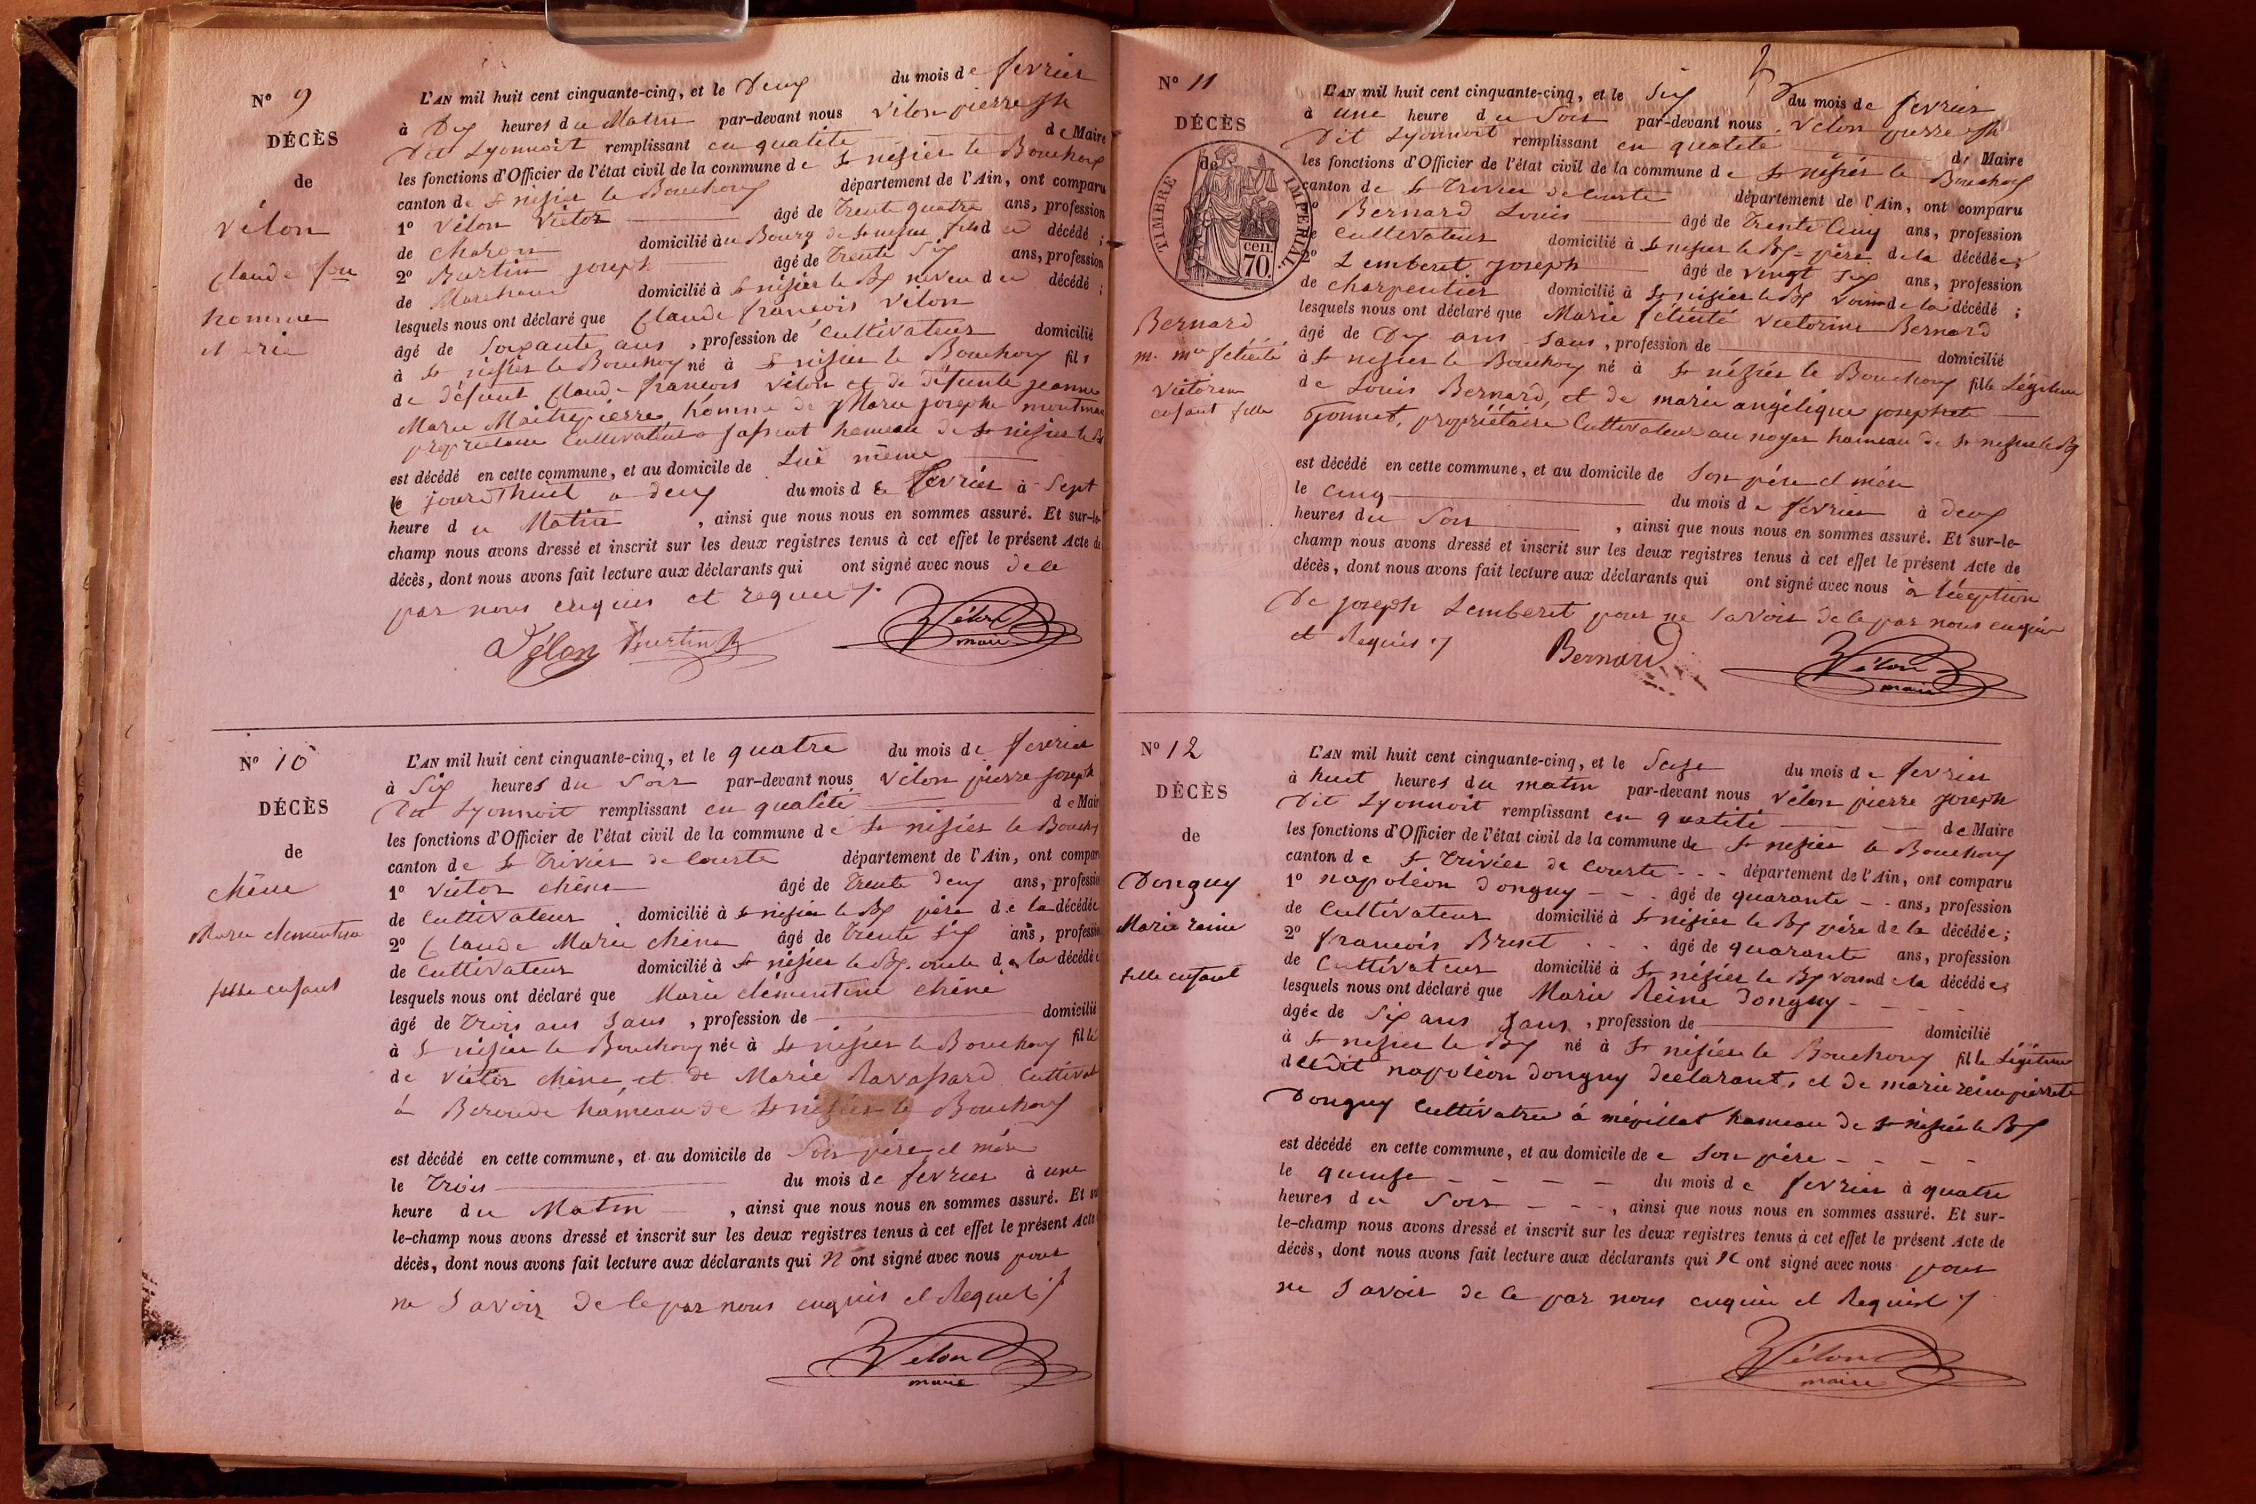 N° 9
DÉCÈS
de
Vélon
Claude fois
homme
marié
L'AN mil huit cent cinquante-cinq, et le Deux du mois de fevrier
à Dix heures du Matin par-devant nous Vélon pierre jh
Dit Lyonnoit remplissant en qualité de Maire
les fonctions d'Officier de l'état civil de la commune de St nisier le Bouchoux
canton de St nisier le Bouchoux département de l'Ain, ont comparu
1° Vélon Victor âgé de trente quatre ans, profession
de charon domicilié au Bourg de St nisier fils du décédé ;
2° Burtin joseph âgé de trente Six ans, profession
de Marchand domicilié à St nisier le Bx neveu du décédé ;
lesquels nous ont déclaré que Claude françois Vélon
âgé de Soixante ans, profession de Cultivateur domicilié
à St nisier le Bouchoux né à St nisier le Bouchoux fils
de défunt Claude françois Vélon et de défunte jeanne
Marie Maitrepierre, homme de Marie josephe
propriétaire Cultivateur a hameau de St nisier le B
est décédé en cette commune, et au domicile de Lui même
le jourd'huit a deux du mois de fevrier à Sept
heure du Matin, ainsi que nous nous en sommes assuré. Et sur-le-
champ nous avons dressé et inscrit sur les deux registres tenus à cet effet le présent Acte de
décès, dont nous avons fait lecture aux déclarants qui ont signé avec nous de ce
par nous enquis et requis
Vélon Burtin Vélon
maire
N° 10
DÉCÈS
de
chêne
Marie clementine
fille enfant
L'AN mil huit cent cinquante-cinq, et le quatre du mois de fevrier
à Six heures du Soir par-devant nous Vélon pierre joseph
Dit Lyonnoit remplissant en qualité de Maire
les fonctions d'Officier de l'état civil de la commune de St nisier le Bouchoux
canton de St Trivier de Courte département de l'Ain, ont comparu
1° Victor chêne âgé de trente deux ans, profession
de Cultivateur domicilié à St nisier le Bx père de la décédée
2° Claude Marie chêne âgé de trente Six ans, profession
de Cultivateur domicilié à St nisier le Bx. oncle de la décédée
lesquels nous ont déclaré que Marie clémentine chêne
âgé de trois ans Sans, profession de domicilié
à St nisier le Bouchoux née à St nisier le Bouchoux fille
de Victor chêne, et de Marie Ravassard Cultivat
à Beroude hameau de St nisier le Bouchoux
est décédé en cette commune, et au domicile de Son père et mère
le trois du mois de fevrier à une
heure du Matin, ainsi que nous nous en sommes assuré. Et sur-
le-champ nous avons dressé et inscrit sur les deux registres tenus à cet effet le présent Acte
décès, dont nous avons fait lecture aux déclarants qui N'ont signé avec nous pour
ne Savoir de ce par nous enquis et Requis
Vélon
maire
N° 11
DÉCÈS
de
TIMBRE IMPERIAL.
cen.
70.
Bernard
m. mie félicité
Victorine
enfant fille
L'AN mil huit cent cinquante-cinq, et le Six du mois de fevrier
à une heure du Soir par-devant nous Vélon pierre jh
Dit Lyonnoit remplissant en qualité de Maire
les fonctions d'Officier de l'état civil de la commune de St nisier le Bouchoux
canton de St Trivier de Courte département de l'Ain, ont comparu
1° Bernard Louis âgé de trente Cinq ans, profession
de Cultivateur domicilié à St nisier le Bx père de la décédée;
2° Lemberet joseph âgé de vingt Six ans, profession
de charpentier domicilié à St nisier le Bx Voisin de la décédé ;
lesquels nous ont déclaré que Marie félicité Victorine Bernard
âgé de Dix ans Sans, profession de domicilié
à St nisier le Bouchoux né à St nisier le Bouchoux fille Légitime
de Louis Bernard, et de marie angélique josephete
Jonnet, propriétaire Cultivateur au noyer hameau de St nisier le Bx
est décédé en cette commune, et au domicile de Son père et mère
le Cinq du mois de février à deux
heures du Soir, ainsi que nous nous en sommes assuré. Et sur-le-
champ nous avons dressé et inscrit sur les deux registres tenus à cet effet le présent Acte de
décès, dont nous avons fait lecture aux déclarants qui ont signé avec nous à l'éxéption
De joseph Lemberet pour ne Savoir de ce par nous enquis
et Requis
Bernard Vélon
maire
N° 12
DÉCÈS
de
Donguy
Marie reine
fille enfant
L'AN mil huit cent cinquante-cinq, et le Seize du mois de fevrier
à huit heures du matin par-devant nous Vélon pierre joseph
Dit Lyonnoit remplissant en qualité de Maire
les fonctions d'Officier de l'état civil de la commune de St nisier le Bouchoux
canton de St Trivier de Courte département de l'Ain, ont comparu
1° napoléon Donguy âgé de quarante ans, profession
de Cultivateur domicilié à St nisier le Bx père de la décédée;
2° françois Brest âgé de quarante ans, profession
de Cultivateur domicilié à St nisier le Bx voisin de la décédée;
lesquels nous ont déclaré que Marie Reine Donguy
âgée de Six ans Sans, profession de domicilié
à St nisier le Bx né à St nisier le Bouchoux fille Légitime
dudit napoléon Donguy déclarant, et de marie reine pierrette
Donguy Cultivatrice à mépillat hameau de St nisier le Bx
est décédé en cette commune, et au domicile de Son père
le quinze du mois de fevrier à quatre
heures du Soir, ainsi que nous nous en sommes assuré. Et sur-
le-champ nous avons dressé et inscrit sur les deux registres tenus à cet effet le présent Acte de
décès, dont nous avons fait lecture aux déclarants qui N'ont signé avec nous pour
ne Savoir de ce par nous enquis et Requis
Vélon
maire